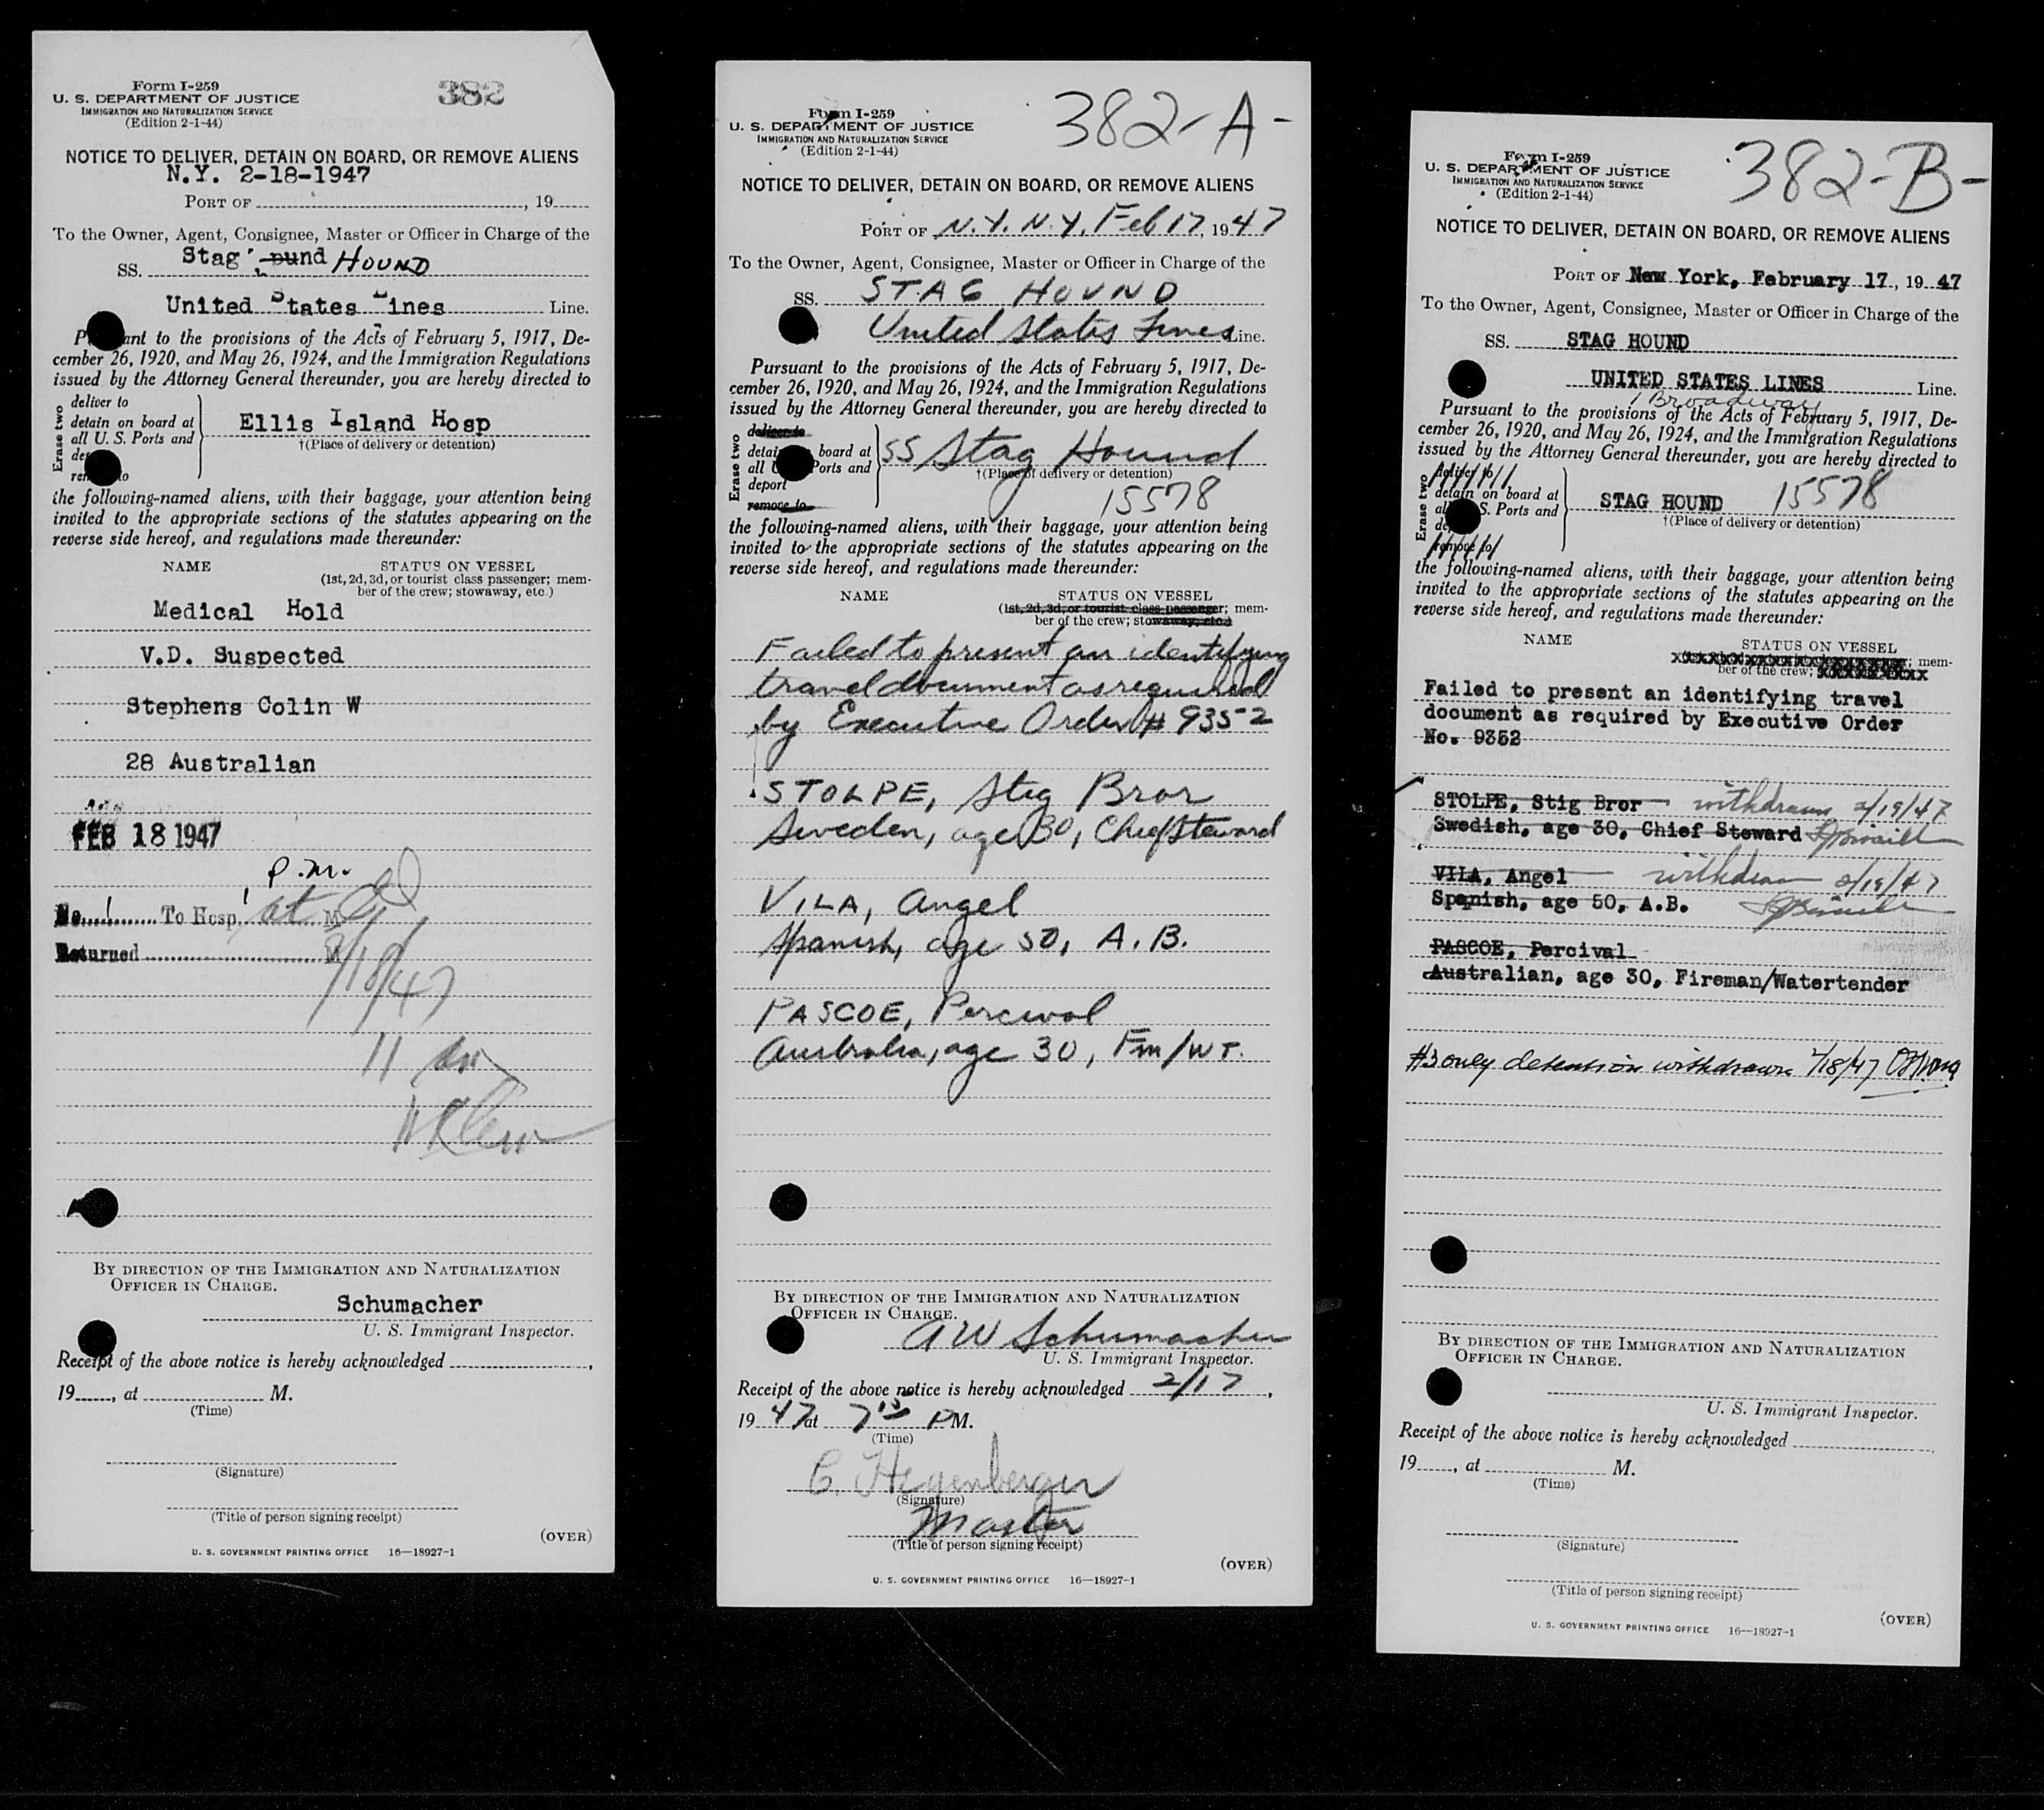 Form I-259
U. S. DEPARTMENT OF JUSTICE
IMMIGRATION AND NATURALIZATION SERVICE
(Edition 2-1-44)
382
NOTICE TO DELIVER, DETAIN ON BOARD, OR REMOVE ALIENS
N.Y. 2-18-1947
PORT OF , 19
To the Owner, Agent, Consignee, Master or Officer in Charge of the
SS. Stag ound HOUND
United States Lines Line.
Pursuant to the provisions of the Acts of February 5, 1917, De-
cember 26, 1920, and May 26, 1924, and the Immigration Regulations
issued by the Attorney General thereunder, you are hereby directed to
Erase two
deliver to
detain on board at
all U. S. Ports and
remove to
Ellis Island Hosp
†(Place of delivery or detention)
the following-named aliens, with their baggage, your attention being
invited to the appropriate sections of the statutes appearing on the
reverse side hereof, and regulations made thereunder:
NAME STATUS ON VESSEL
(1st, 2d, 3d, or tourist class passenger; mem-
ber of the crew; stowaway, etc.)
Medical Hold
V.D. Suspected
Stephens Colin W
28 Australian
FEB 18 1947
P.M.
No. 1 To Hosp. at M
Returned M
2/18/47
11
BY DIRECTION OF THE IMMIGRATION AND NATURALIZATION
OFFICER IN CHARGE.
Schumacher
U. S. Immigrant Inspector.
Receipt of the above notice is hereby acknowledged ,
19 , at M.
(Time)
(Signature)
(Title of person signing receipt)
(OVER)
U. S. GOVERNMENT PRINTING OFFICE 16—18927-1
Form I-259
U. S. DEPARTMENT OF JUSTICE
IMMIGRATION AND NATURALIZATION SERVICE
(Edition 2-1-44)
382-A-
NOTICE TO DELIVER, DETAIN ON BOARD, OR REMOVE ALIENS
PORT OF N.Y. N.Y. Feb 17, 1947
To the Owner, Agent, Consignee, Master or Officer in Charge of the
SS. STAG HOUND
United States Lines Line.
Pursuant to the provisions of the Acts of February 5, 1917, De-
cember 26, 1920, and May 26, 1924, and the Immigration Regulations
issued by the Attorney General thereunder, you are hereby directed to
Erase two
deliver to
detain on board at
all U. S. Ports and
deport
remove to
SS Stag Hound
†(Place of delivery or detention)
15578
the following-named aliens, with their baggage, your attention being
invited to the appropriate sections of the statutes appearing on the
reverse side hereof, and regulations made thereunder:
NAME STATUS ON VESSEL
(1st, 2d, 3d, or tourist class passenger; mem-
ber of the crew; stowaway, etc.)
Failed to present an identifying
travel document as required
by Executive Order # 9352
STOLPE, Stig Bror
Sweden, age 30, Chief Steward
VILA, Angel
Spanish, age 50, A.B.
PASCOE, Percival
Australia, age 30, Fm/WT.
BY DIRECTION OF THE IMMIGRATION AND NATURALIZATION
OFFICER IN CHARGE.
A W Schumacher
U. S. Immigrant Inspector.
Receipt of the above notice is hereby acknowledged 2/17,
1947 at 7 15 P M.
(Time)
C. Hegenberger
(Signature)
Master
(Title of person signing receipt)
(OVER)
U. S. GOVERNMENT PRINTING OFFICE 16—18927-1
Form I-259
U. S. DEPARTMENT OF JUSTICE
IMMIGRATION AND NATURALIZATION SERVICE
(Edition 2-1-44)
382-B-
NOTICE TO DELIVER, DETAIN ON BOARD, OR REMOVE ALIENS
PORT OF New York, February 17, 1947
To the Owner, Agent, Consignee, Master or Officer in Charge of the
SS. STAG HOUND
UNITED STATES LINES Line.
1 Broadway
Pursuant to the provisions of the Acts of February 5, 1917, De-
cember 26, 1920, and May 26, 1924, and the Immigration Regulations
issued by the Attorney General thereunder, you are hereby directed to
Erase two
deliver to
detain on board at
all U. S. Ports and
remove to
STAG HOUND 15578
†(Place of delivery or detention)
the following-named aliens, with their baggage, your attention being
invited to the appropriate sections of the statutes appearing on the
reverse side hereof, and regulations made thereunder:
NAME STATUS ON VESSEL
; mem-
ber of the crew;
Failed to present an identifying travel
document as required by Executive Order
No. 9352
STOLPE, Stig Bror withdrawn 2/19/47
Swedish, age 30, Chief Steward
VILA, Angel withdrawn 2/19/47
Spanish, age 50, A.B.
PASCOE, Percival
Australian, age 30, Fireman/Watertender
#3 only detention withdrawn 2/18/47
BY DIRECTION OF THE IMMIGRATION AND NATURALIZATION
OFFICER IN CHARGE.
U. S. Immigrant Inspector.
Receipt of the above notice is hereby acknowledged ,
19 , at M.
(Time)
(Signature)
(Title of person signing receipt)
(OVER)
U. S. GOVERNMENT PRINTING OFFICE 16—18927-1